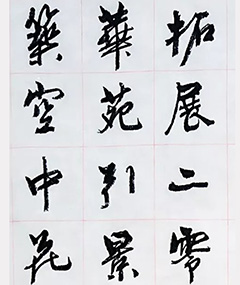 拓展二零
華苑引景
築空中花